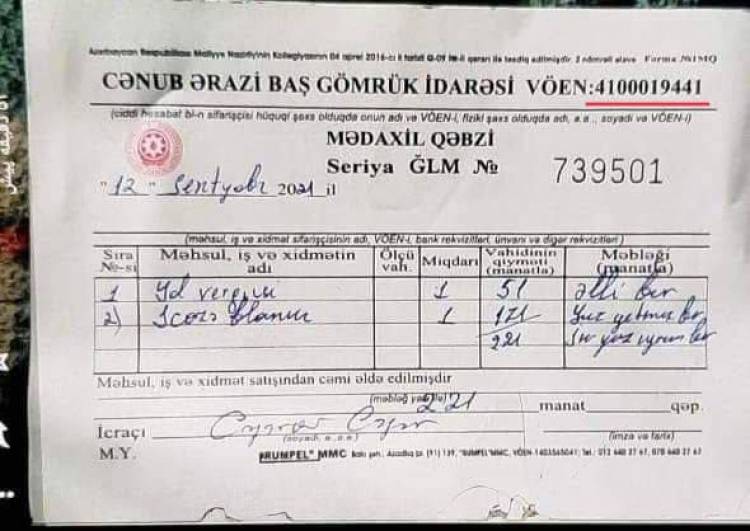 Azərbaycan Respublikası Maliyyə Nazirliyinin Kollegiyasının 04 aprel 2016-cı il tarixli Q-09 №-li qərarı ilə təsdiq edilmişdir. 2 nömrəli əlavə Forma №1MQ
CƏNUB ƏRAZİ BAŞ GÖMRÜK İDARƏSİ VÖEN:4100019441
(ciddi hesabat bl-n sifarişçisi hüquqi şəxs olduqda onun adı və VÖEN-i, fiziki şəxs olduqda adı, a.a., soyadı və VÖEN-i)
MƏDAXİL QƏBZİ
Seriya ĞLM № 739501
"12" sentyabr 2021 il
(məhsul, iş və xidmət sifarişçisinin adı, VÖEN-i, bank rekvizitləri, ünvanı və digər rekvizitləri)
Sıra №-si Məhsul, iş və xidmətin adı Ölçü vah. Miqdarı Vahidinin qiyməti (manatla) Məbləği (manatla)
1 Yol vergisi 1 51 əlli bir
2) blank 1 171 yüz yetmiş bir
221 iki yüz iyirmi bir
Məhsul, iş və xidmət satışından cəmi əldə edilmişdir
221 manat qəp.
(məbləğ yazı ilə)
İcraçı
(soyadı, a., a.a) (imza və tarix)
M.Y. "RUMPEL" MMC Bakı şəh., Azadlıq